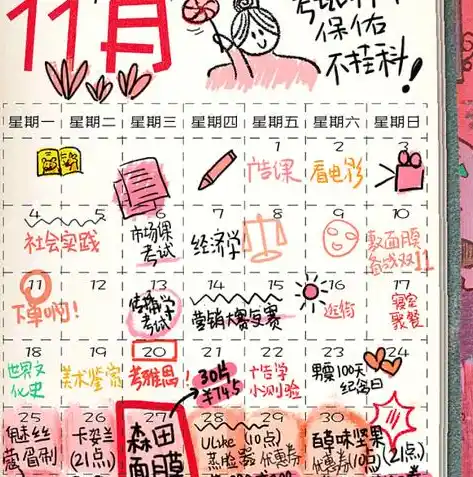 11月
考试
保佑
不挂科！
星期一 星期二 星期三 星期四 星期五 星期六 星期日
1 2 3
广告课
看电影
4 5 6 7 8 9 10
社会实践
市场课
考试
经济学
敷面膜
备战双11
11 12 13 14 15 16 17
下单啊！
传播学
考试
营销大赛复赛
逛街
寝室
聚餐
18 19 20 21 22 23 24
世界文
化史
美术鉴赏
考雅思！
30片
¥745
广告学
小测验
100天
纪念日
25 26 27 28 29 30
魅丝
蔻眉制
卡姿兰
(21点)
森田
面膜
Ulike (10点)
蒸脸器 优惠券
百草味坚果
优惠券(10点)
(21点)